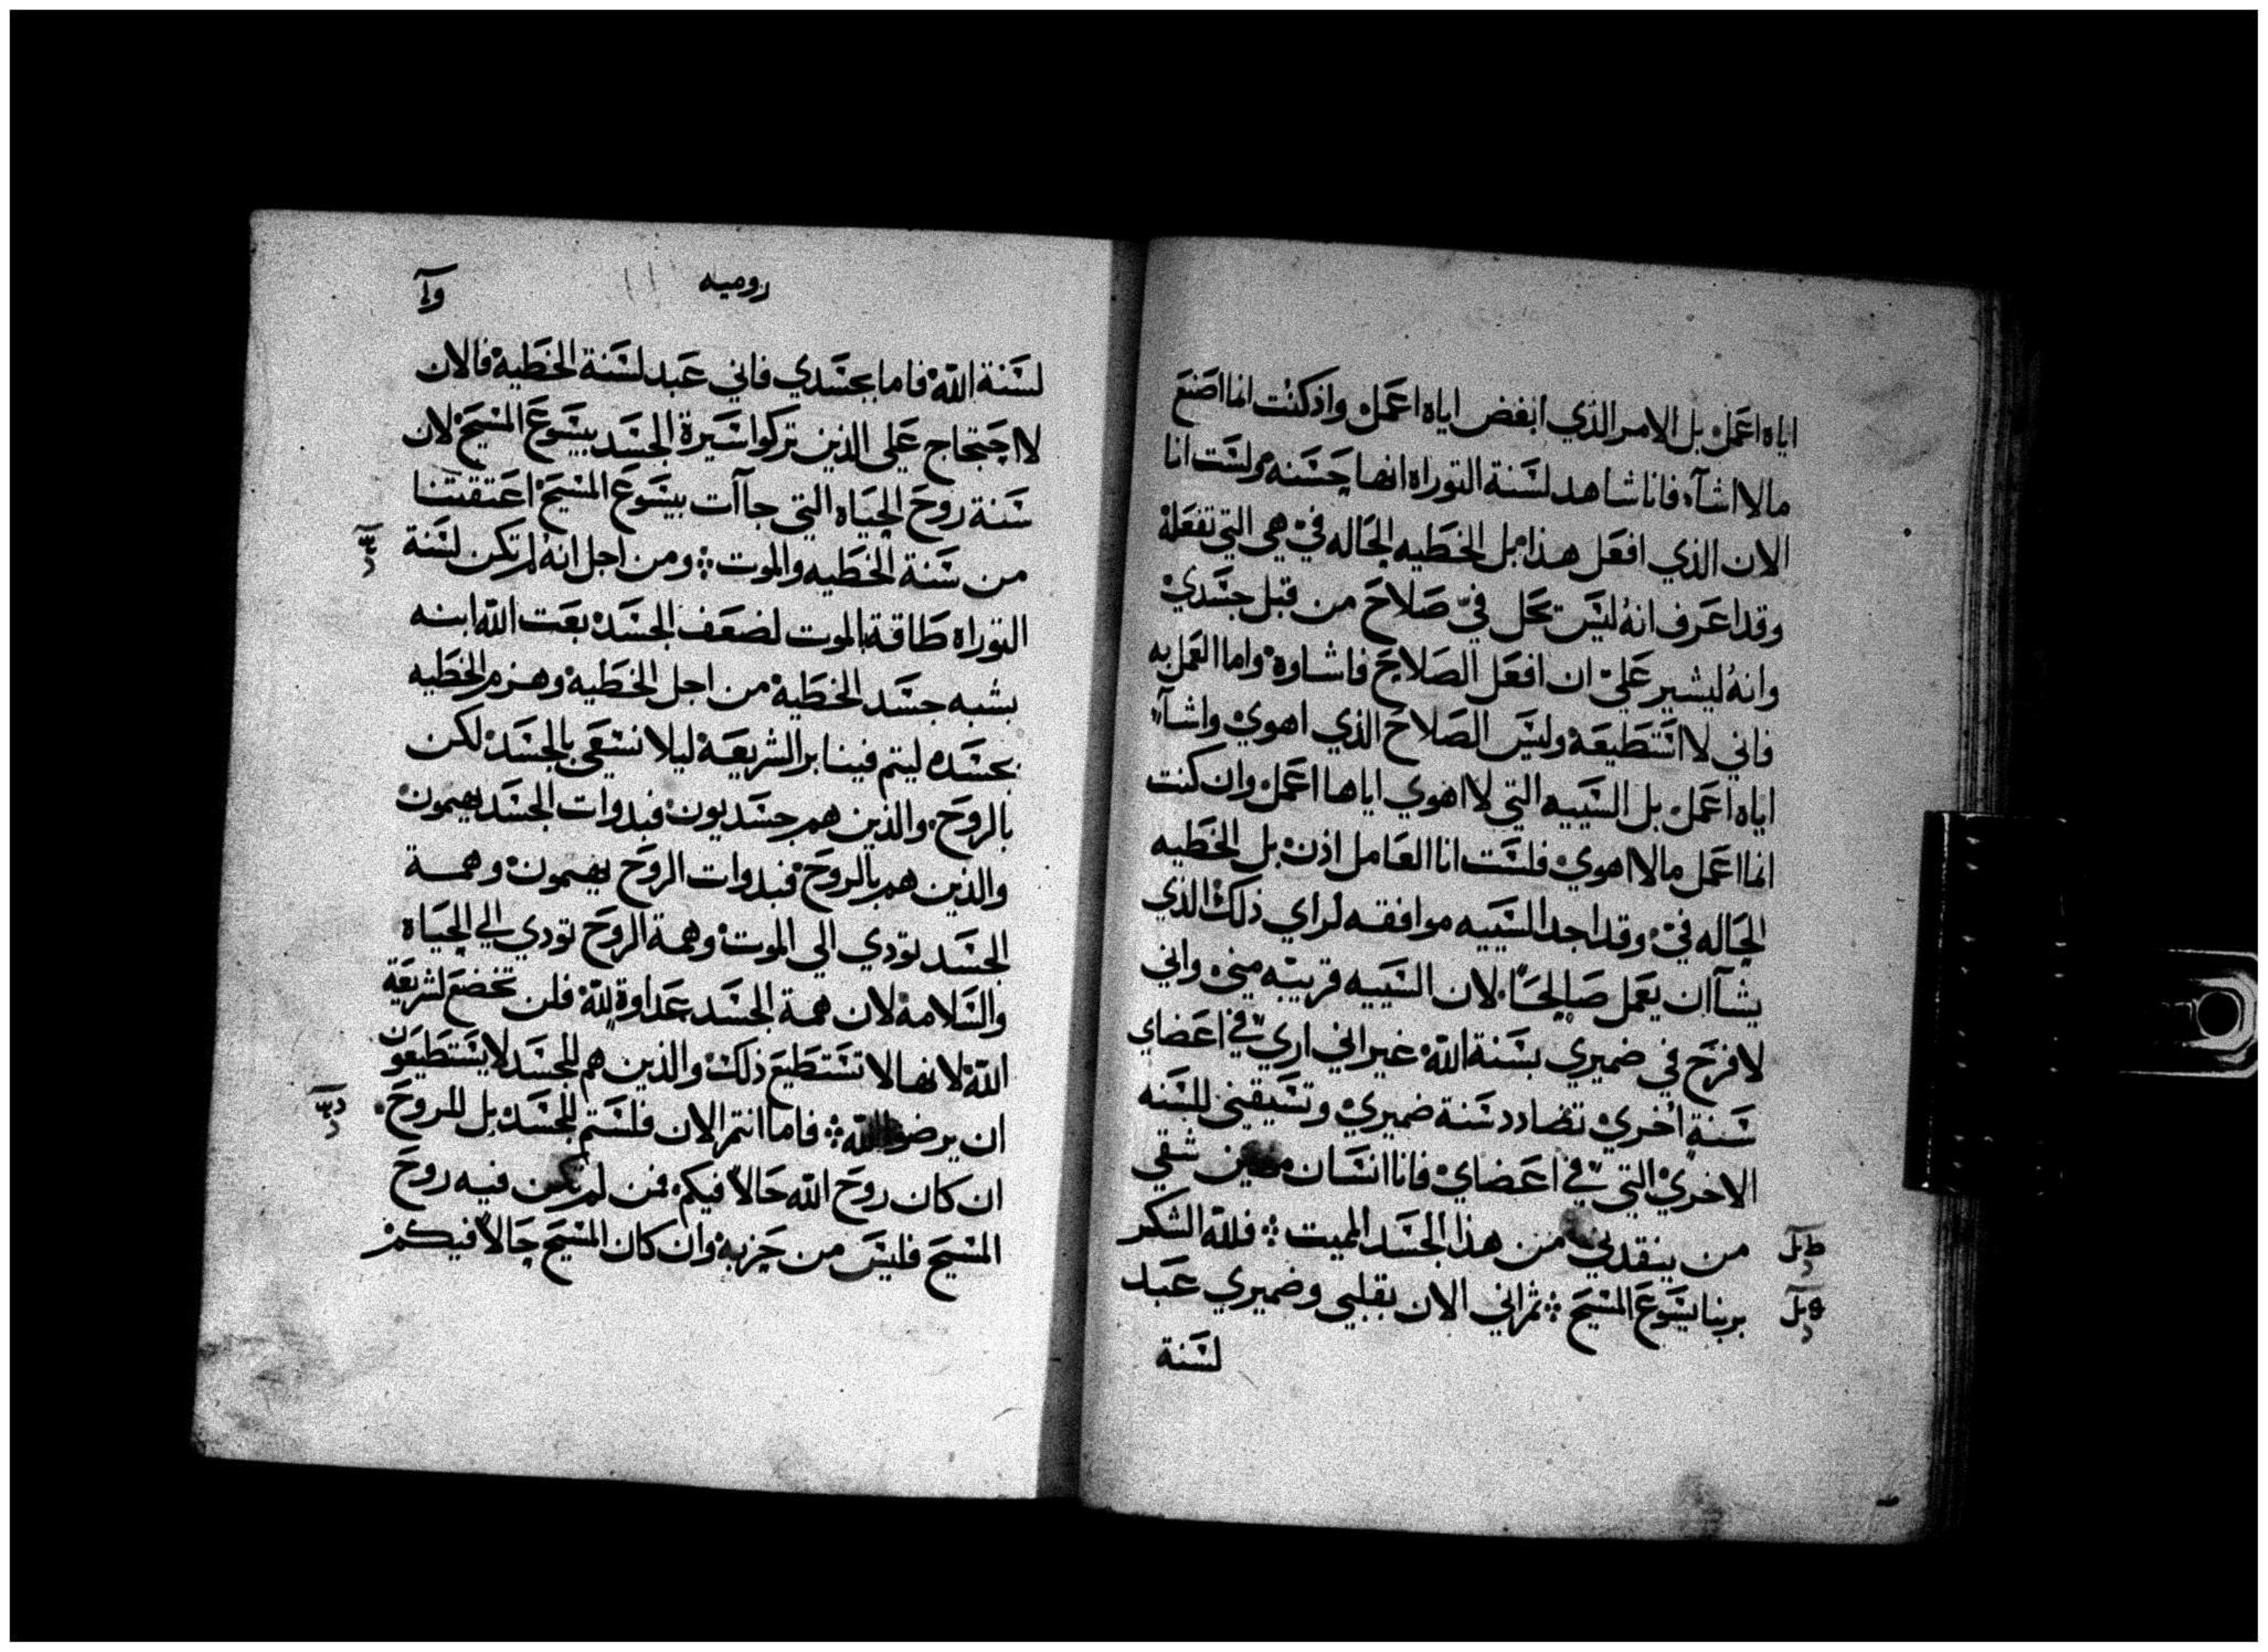 اياه اعمل بل الامر الذي ابغض اياه اعمل واذ كنت انما اصنع
مالا اشآء فانا شاهد لسنة التوراه انها حسنه ولست انا
الان الذي افعل هذا بل الخطيه الحاله في هي التي تفعله
وقد اعرف انه ليس تحل فيّ صلاح من قبل جسدي
وانه ليشير عليّ ان افعل الصلاح فاشاوه واما العمل به
فاني لا استطيعه وليس الصلاح الذي اهوي واشآء
اياه اعمل بل السييه التي لا اهوي اياها اعمل وان كنت
انما اعمل مالا اهوي فلست انا العامل اذن بل الخطيه
الحاله في وقد اجد السييه موافقه لراي ذلك الذي
يشآ ان يعمل صالحاً لان السييه قريبه مني واني
لافرح في ضميري بسنة الله غير اني اري في اعضاي
سنة اخري تضادد سنة ضميري وتسيقني للسنه
الاخري التي في اعضاي فانا انسان شقي
من ينقدني من هذا الجسد المميت فلله الشكر
بربنا يسوع المسيح ثم اني الان بقلبي وضميري عبد
لسنة
روميه
لسنة الله فاما بجسدي فاني عبد لسنة الخطية فالان
لا احتجاج علي الذين تركوا سيرة الجسد بيسوع المسيح لان
سنة روح الحياه التي جاآت بيسوع المسيح اعتقتنا
من سنة الخطيه والموت ومن اجل انه لم تكن لسنة
التوراه طاقة بالموت لضعف الجسد بعت الله ابنه
بشبه جسد الخطية من اجل الخطية وهزم الخطيه
بجسده ليتم فينا بر الشريعة ليلا نسعي بالجسد لكن
بالروح والذين هم جسديون فبدوات الجسد يهمون
والذين هم بالروح فبدوات الروح يهمون وهمة
الجسد تودي الي الموت وهمة الروح تودي الي الحياة
والسلامة لان همة الجسد عداوة لله فلن تخضع لشريعة
الله لانها لا تستطيع ذلك والذين هم للجسد لا يستطيعون
ان يرضوا الله فاما انتم الان فلستم للجسد بل للروح
ان كان روح الله حالاً فيكم فمن لم تكن فيه روح
المسيح فليس من حزبه وان كان المسيح حالاً فيكم